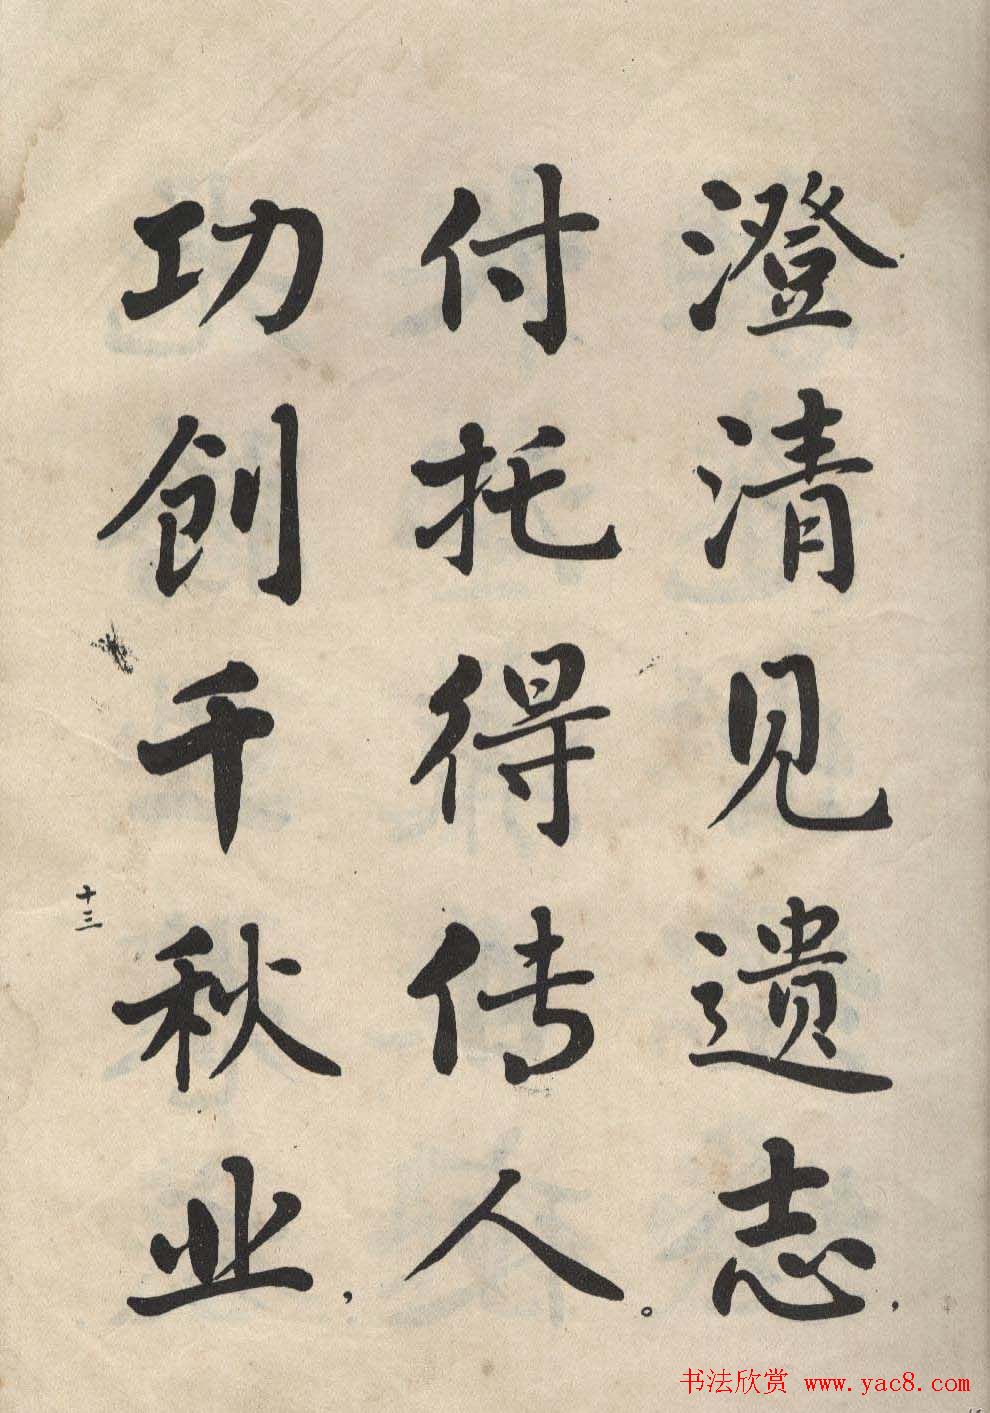 澄清见遗志，
付托得传人。
功创千秋业，
十三
书法欣赏 www.yac8.com